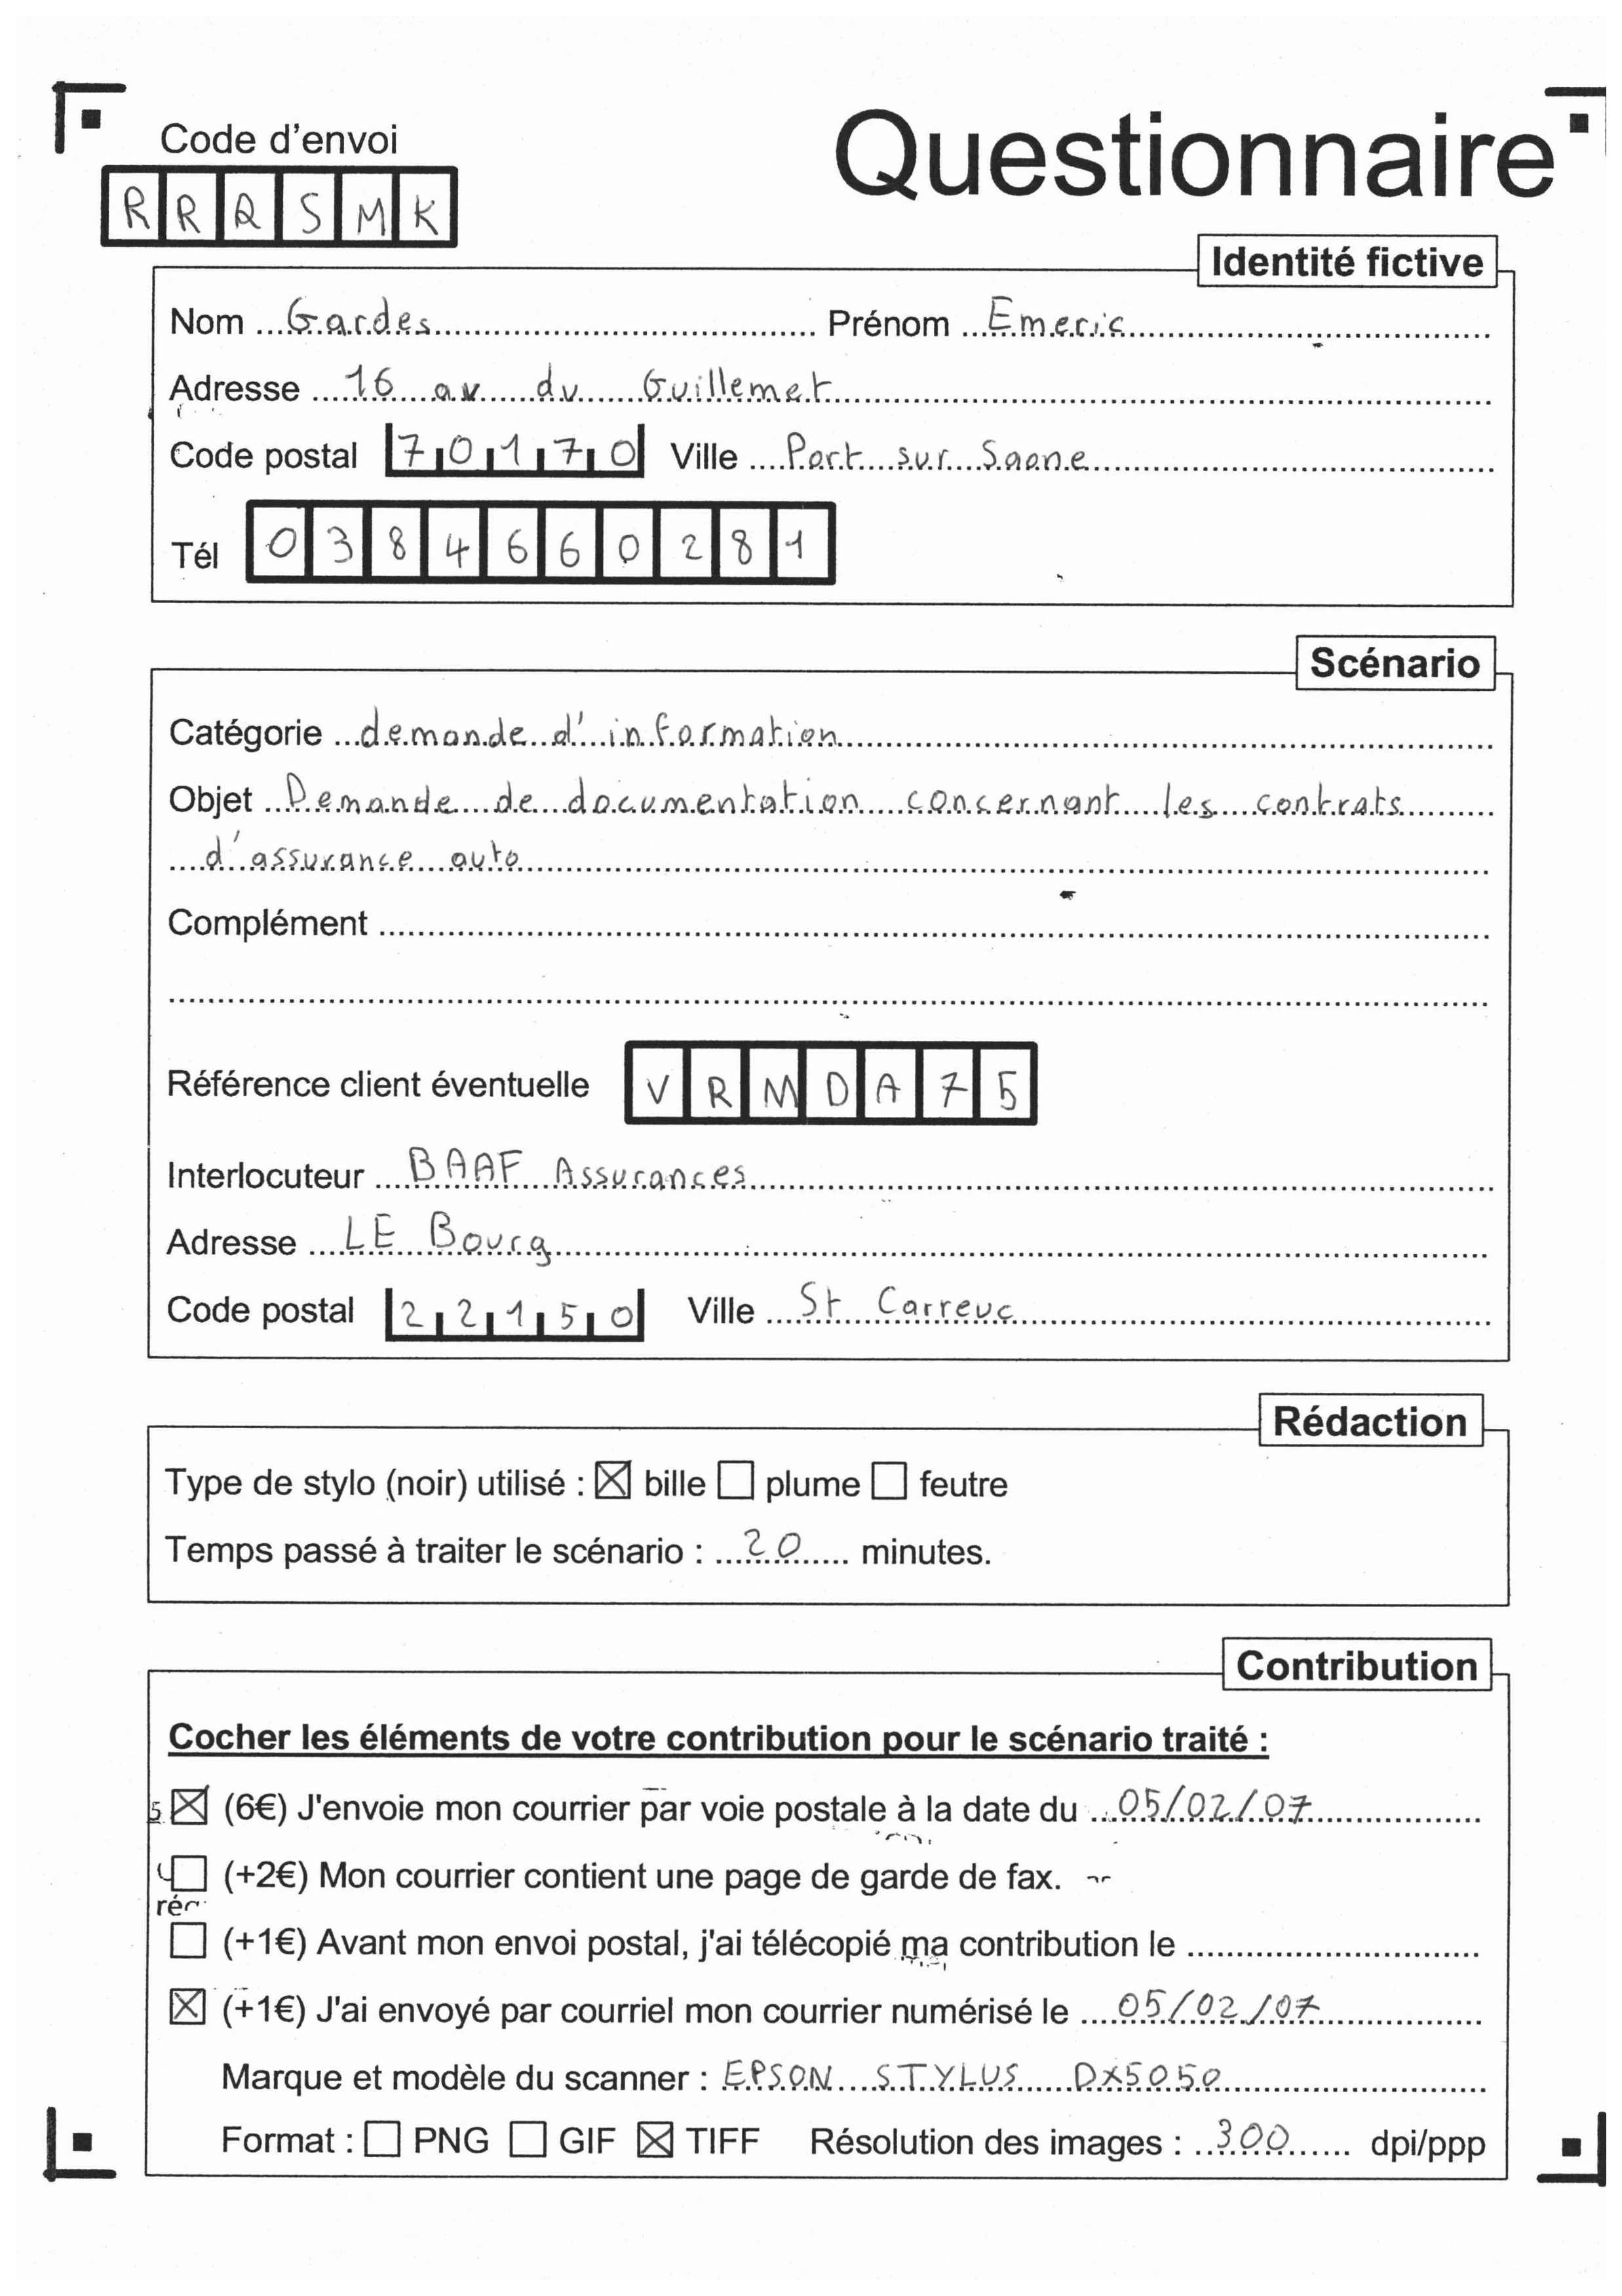 Code d'envoi
RRQSMK
Questionnaire
Identité fictive
Nom Gardes Prénom Emeric
Adresse 16 av du Guillemet
Code postal 70170 Ville Port sur Saone
Tél 0384660281
Scénario
Catégorie demande d'information
Objet Demande de documentation concernant les contrats
d'assurance auto
Complément
Référence client éventuelle VRMDA75
Interlocuteur BAAF Assurances
Adresse LE Bourg
Code postal 22150 Ville St Carreuc
Rédaction
Type de stylo (noir) utilisé : ☒ bille ☐ plume ☐ feutre
Temps passé à traiter le scénario : 20 minutes.
Contribution
Cocher les éléments de votre contribution pour le scénario traité :
☒ (6€) J'envoie mon courrier par voie postale à la date du 05/02/07
☐ (+2€) Mon courrier contient une page de garde de fax.
☐ (+1€) Avant mon envoi postal, j'ai télécopié ma contribution le
☒ (+1€) J'ai envoyé par courriel mon courrier numérisé le 05/02/07
Marque et modèle du scanner : EPSON STYLUS DX5050
Format : ☐ PNG ☐ GIF ☒ TIFF Résolution des images : 300 dpi/ppp